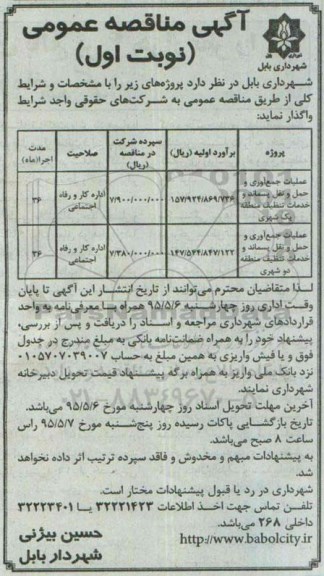 آگهی مناقصه عمومی
(نوبت اول)
شهرداری بابل
شهرداری بابل در نظر دارد پروژه‌های زیر را با مشخصات و شرایط
کلی از طریق مناقصه عمومی به شرکت‌های حقوقی واجد شرایط
واگذار نماید:
پروژه | برآورد اولیه (ریال) | سپرده شرکت در مناقصه (ریال) | صلاحیت | مدت اجرا(ماه)
عملیات جمع‌آوری و حمل و نقل پسماند و خدمات تنظیف منطقه یک شهری | ۱۵۷/۹۲۴/۸۶۹/۷۳۶ | ۷/۹۰۰/۰۰۰/۰۰۰ | اداره کار و رفاه اجتماعی | ۳۶
عملیات جمع‌آوری و حمل و نقل پسماند و خدمات تنظیف منطقه دو شهری | ۱۴۷/۵۴۴/۸۴۷/۱۲۲ | ۷/۳۸۰/۰۰۰/۰۰۰ | اداره کار و رفاه اجتماعی | ۳۶
لذا متقاضیان محترم می‌توانند از تاریخ انتشار این آگهی تا پایان
وقت اداری روز چهارشنبه ۹۵/۵/۶ همراه با معرفی‌نامه به واحد
قراردادهای شهرداری مراجعه و اسناد را دریافت و پس از بررسی،
پیشنهاد خود را به همراه ضمانت‌نامه بانکی به مبلغ مندرج در جدول
فوق و یا فیش واریزی به همین مبلغ به حساب ۰۱۰۵۷۰۷۰۳۹۰۰۷
نزد بانک ملی واریز به همراه برگه پیشنهاد قیمت تحویل دبیرخانه
شهرداری نمایند.
آخرین مهلت تحویل اسناد روز چهارشنبه مورخ ۹۵/۵/۶ می‌باشد.
تاریخ بازگشایی پاکات رسیده روز پنج‌شنبه مورخ ۹۵/۵/۷ راس
ساعت ۸ صبح می‌باشد.
به پیشنهادات مبهم و مخدوش و فاقد سپرده ترتیب اثر داده نخواهد
شد.
شهرداری در رد یا قبول پیشنهادات مختار است.
تلفن تماس جهت اخذ اطلاعات ۳۲۲۲۱۴۲۳ یا ۳۲۲۲۳۴۰۱
داخلی ۲۶۸ می‌باشد.
http://www.babolcity.ir
حسین بیژنی
شهردار بابل